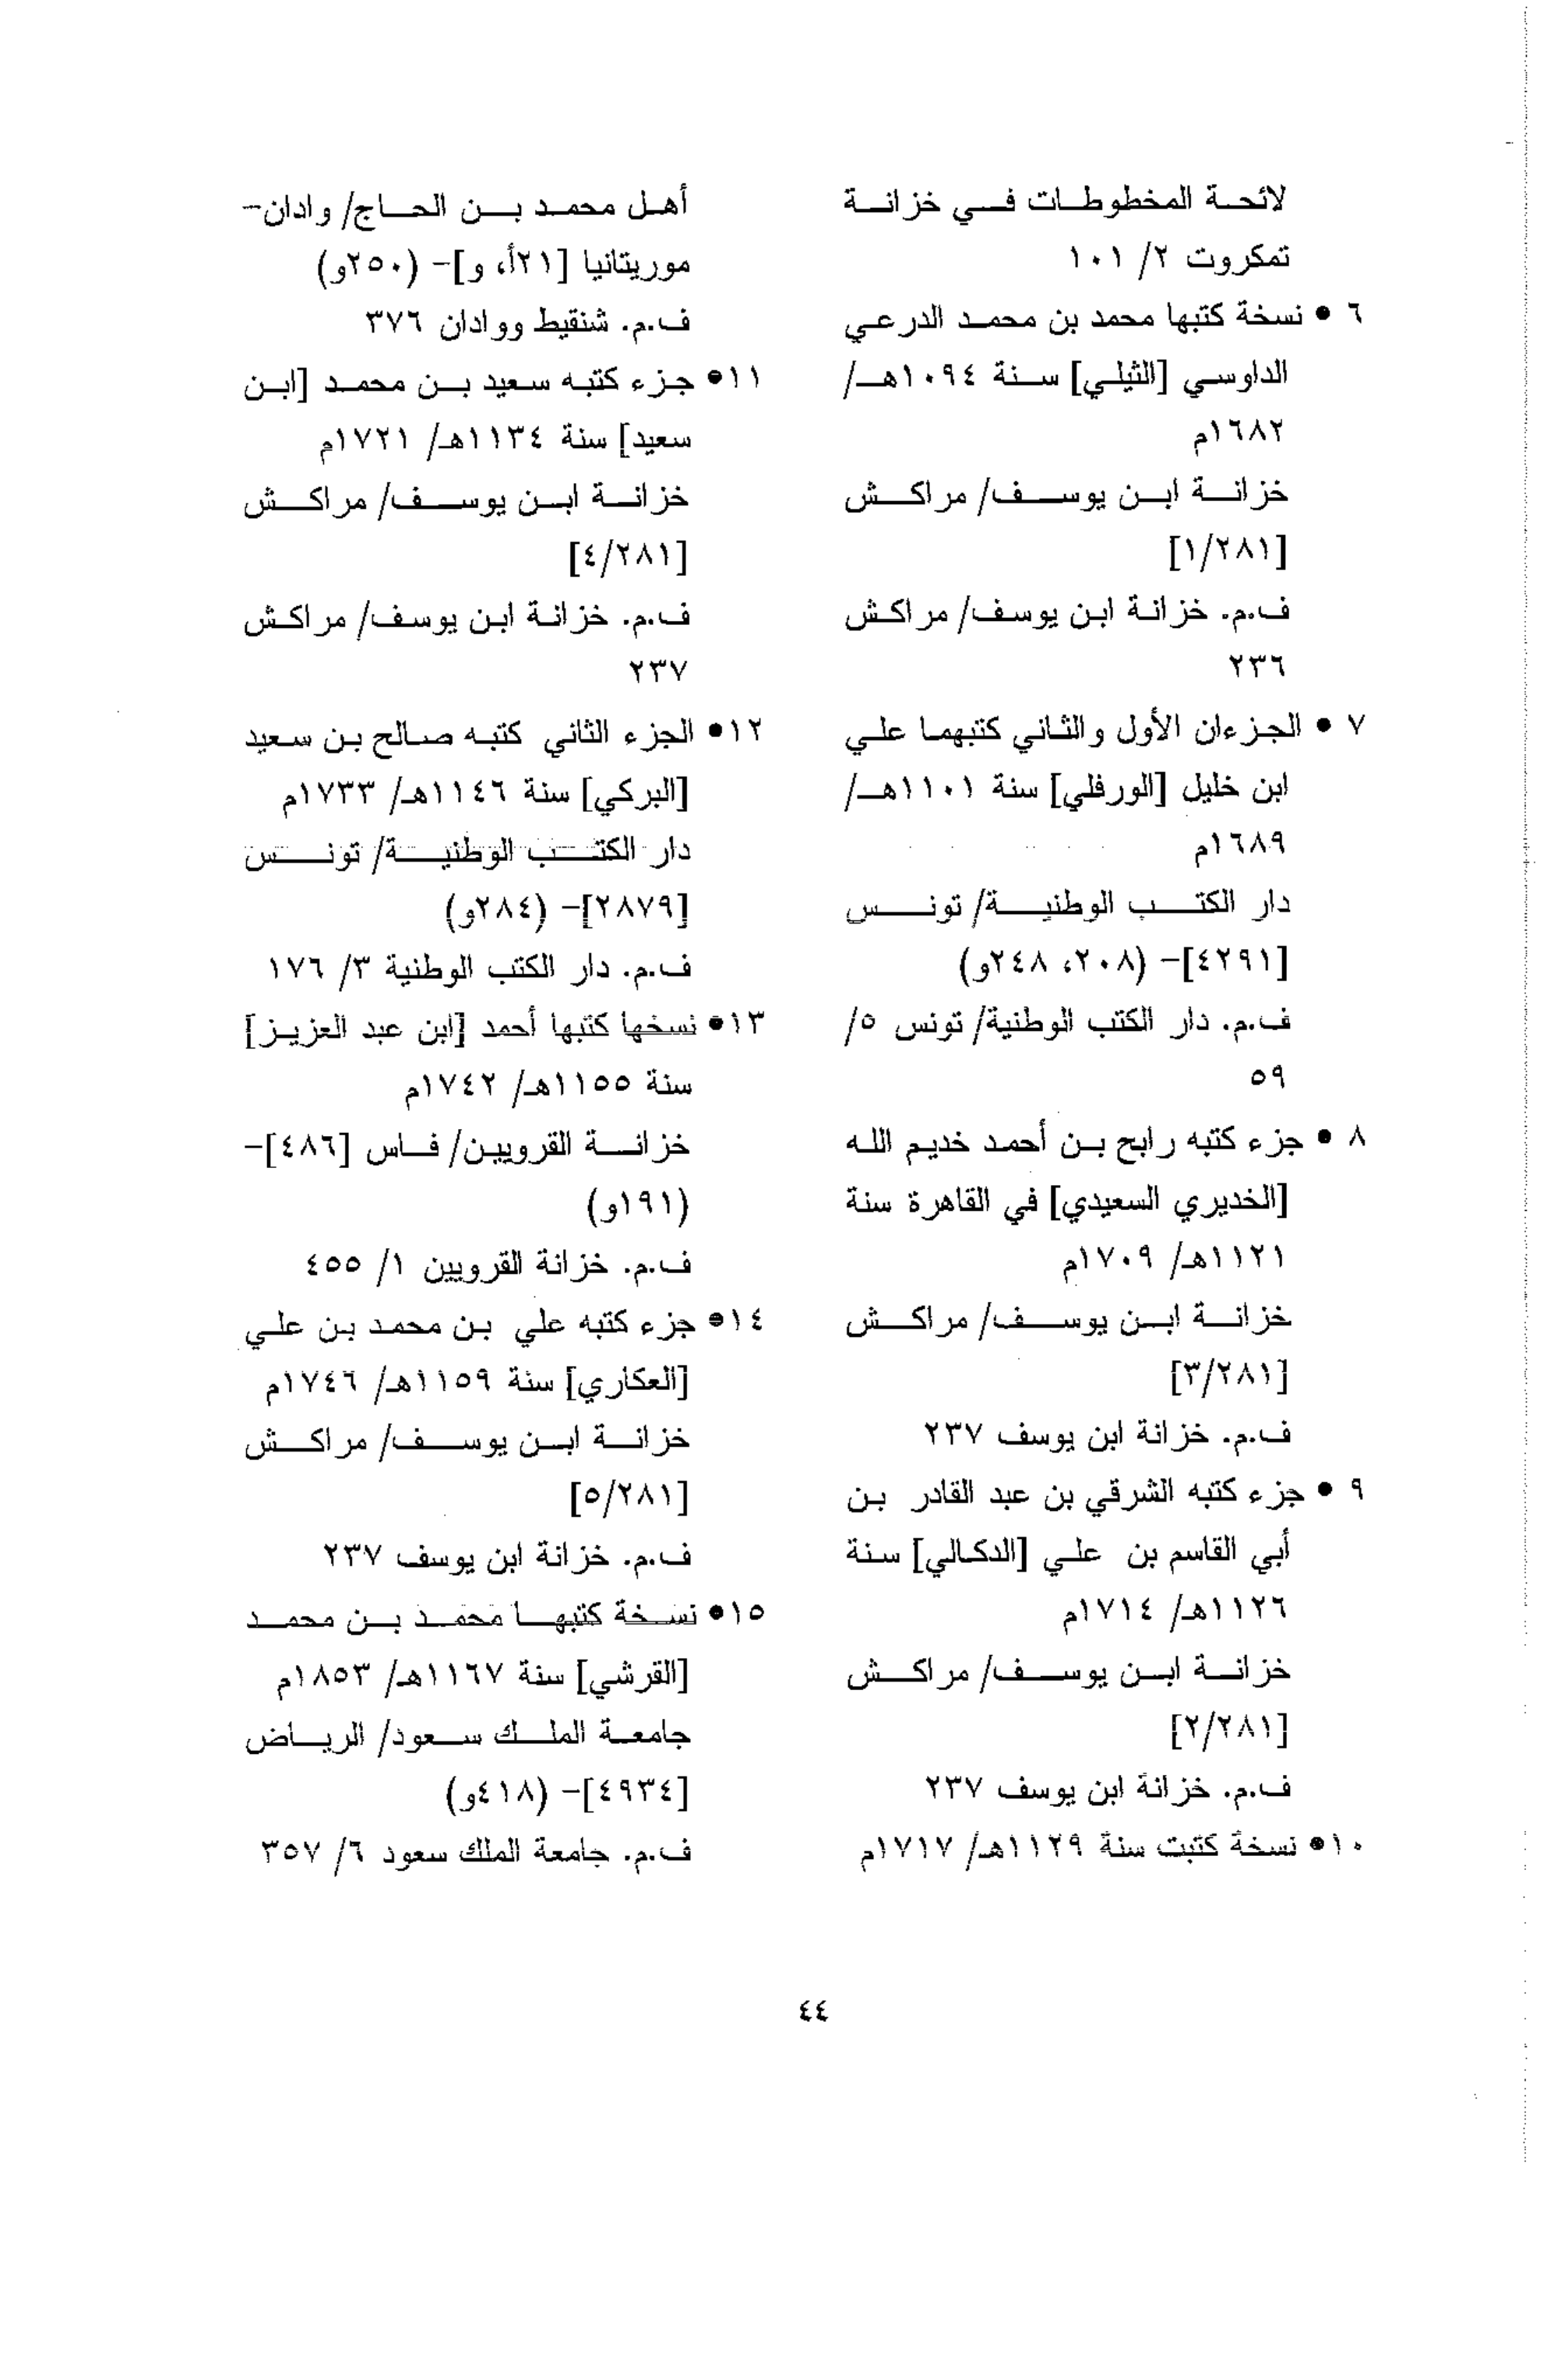 لائحة المخطوطات في خزانة
تمكروت ٢/ ١٠١
٦ • نسخة كتبها محمد بن محمد الدرعي
الداوسي [الثيلي] سنة ١٠٩٤هـ/
١٦٨٢م
خزانة ابن يوسف/ مراكش
[١/٢٨١]
ف.م. خزانة ابن يوسف/ مراكش
٢٣٦
٧ • الجزءان الأول والثاني كتبهما علي
ابن خليل [الورفلي] سنة ١١٠١هـ/
١٦٨٩م
دار الكتب الوطنية/ تونس
[٤٢٩١]- (٢٠٨، ٢٤٨و)
ف.م. دار الكتب الوطنية/ تونس ٥/
٥٩
٨ • جزء كتبه رابح بن أحمد خديم الله
[الخديري السعيدي] في القاهرة سنة
١١٢١هـ/ ١٧٠٩م
خزانة ابن يوسف/ مراكش
[٣/٢٨١]
ف.م. خزانة ابن يوسف ٢٣٧
٩ • جزء كتبه الشرقي بن عبد القادر بن
أبي القاسم بن علي [الدكالي] سنة
١١٢٦هـ/ ١٧١٤م
خزانة ابن يوسف/ مراكش
[٢/٢٨١]
ف.م. خزانة ابن يوسف ٢٣٧
١٠• نسخة كتبت سنة ١١٢٩هـ/ ١٧١٧م
أهل محمد بن الحاج/ وادان-
موريتانيا [٢١أ، و]- (٢٥٠و)
ف.م. شنقيط ووادان ٣٧٦
١١• جزء كتبه سعيد بن محمد [ابن
سعيد] سنة ١١٣٤هـ/ ١٧٢١م
خزانة ابن يوسف/ مراكش
[٤/٢٨١]
ف.م. خزانة ابن يوسف/ مراكش
٢٣٧
١٢• الجزء الثاني كتبه صالح بن سعيد
[البركي] سنة ١١٤٦هـ/ ١٧٣٣م
دار الكتب الوطنية/ تونس
[٢٨٧٩]- (٢٨٤و)
ف.م. دار الكتب الوطنية ٣/ ١٧٦
١٣• نسخها كتبها أحمد [ابن عبد العزيز]
سنة ١١٥٥هـ/ ١٧٤٢م
خزانة القرويين/ فاس [٤٨٦]-
(١٩١و)
ف.م. خزانة القرويين ١/ ٤٥٥
١٤• جزء كتبه علي بن محمد بن علي
[العكاري] سنة ١١٥٩هـ/ ١٧٤٦م
خزانة ابن يوسف/ مراكش
[٥/٢٨١]
ف.م. خزانة ابن يوسف ٢٣٧
١٥• نسخة كتبها محمد بن محمد
[القرشي] سنة ١١٦٧هـ/ ١٨٥٣م
جامعة الملك سعود/ الرياض
[٤٩٣٤]- (٤١٨و)
ف.م. جامعة الملك سعود ٦/ ٣٥٧
٤٤